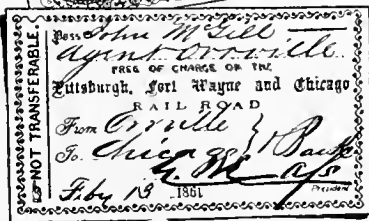 NOT TRANSFERABLE.
Pass John McGill
Agent Orrville
FREE OF CHARGE ON THE
Pittsburgh, Fort Wayne and Chicago
RAIL ROAD
From Orrville
To Chicago & Back
Feby 13 1861
President